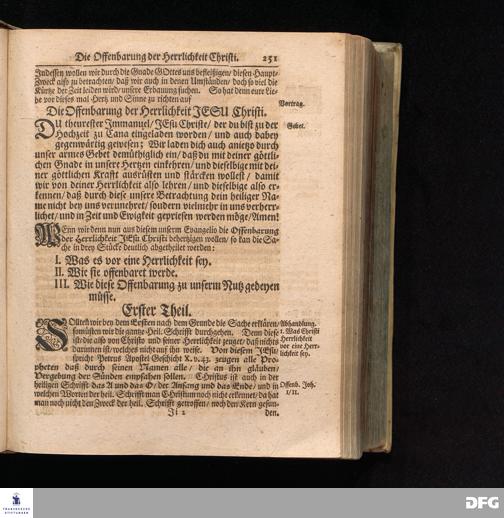 Die Offenbarung der Herrlichkeit Christi. 251
Indessen wollen wir durch die Gnade GOttes uns befleißigen/ diesen Haupt-
Zweck also zu betrachten/ daß wir auch in denen Umständen/ doch so viel die
Kürtze der Zeit leiden wird/ unsere Erbauung suchen. So hat denn eure Lie-
be vor dieses mal Hertz und Sinne zu richten auf
Vortrag.
Die Offenbarung der Herrlichkeit JESU Christi.
DU theurester Immanuel/ JEsu Christe/ der du bist zu der
Gebet.
Hochzeit zu Cana eingeladen worden/ und auch dabey
gegenwärtig gewesen; Wir laden dich auch anietzo durch
unser armes Gebet demüthiglich ein/ daß du mit deiner göttli-
chen Gnade in unsere Hertzen einkehren/ und dieselbige mit dei-
ner göttlichen Krafft ausrüsten und stärcken wollest/ damit
wir von deiner Herrlichkeit also lehren/ und dieselbige also er-
kennen/ daß durch diese unsere Betrachtung dein heiliger Na-
me nicht bey uns verunehret/ sondern vielmehr in uns verherr-
lichet/ und in Zeit und Ewigkeit gepriesen werden möge/ Amen!
WEnn wir denn nun aus diesem unserm Evangelio die Offenbarung
der Herrlichkeit JEsu Christi behertzigen wollen/ so kan die Sa-
che in drey Stücke deutlich abgetheilet werden:
I. Was es vor eine Herrlichkeit sey.
II. Wie sie offenbaret werde.
III. Wie diese Offenbarung zu unserm Nutz gedeyen
müsse.
Erster Theil.
SOllten wir bey dem Ersten nach dem Grunde die Sache erklären/
so müsten wir die gantze Heil. Schrifft durchgehen. Denn diese
ist die also von Christo und seiner Herrlichkeit zeuget/ daß nichts
darinnen ist/ welches nicht auf ihn weise. Von diesem JEsu/
spricht Petrus Apostel Geschicht X. v. 43. zeugen alle Pro-
pheten daß durch seinen Namen alle/ die an ihn gläuben/
Vergebung der Sünden empfahen sollen. CHristus ist auch in der
heiligen Schrifft das A und das O/ der Anfang und das Ende/ und in
welchen Worten der heil. Schrifft man CHristum noch nicht erkennet/ da hat
man noch nicht den Zweck der heil. Schrifft getroffen/ noch den Kern gefun-
Ji 2 den.
Abhandlung.
I. Was Christi
Herrlichkeit
vor eine Herr-
lichkeit sey.
Offenb. Joh.
I/ 11.
FRANCKESCHE
STIFTUNGEN
DFG